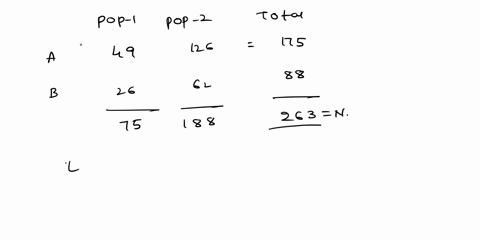 pop-1 pop-2 Total
A 49 126 = 175
B 26 62 88
75 188 263 = N.
L